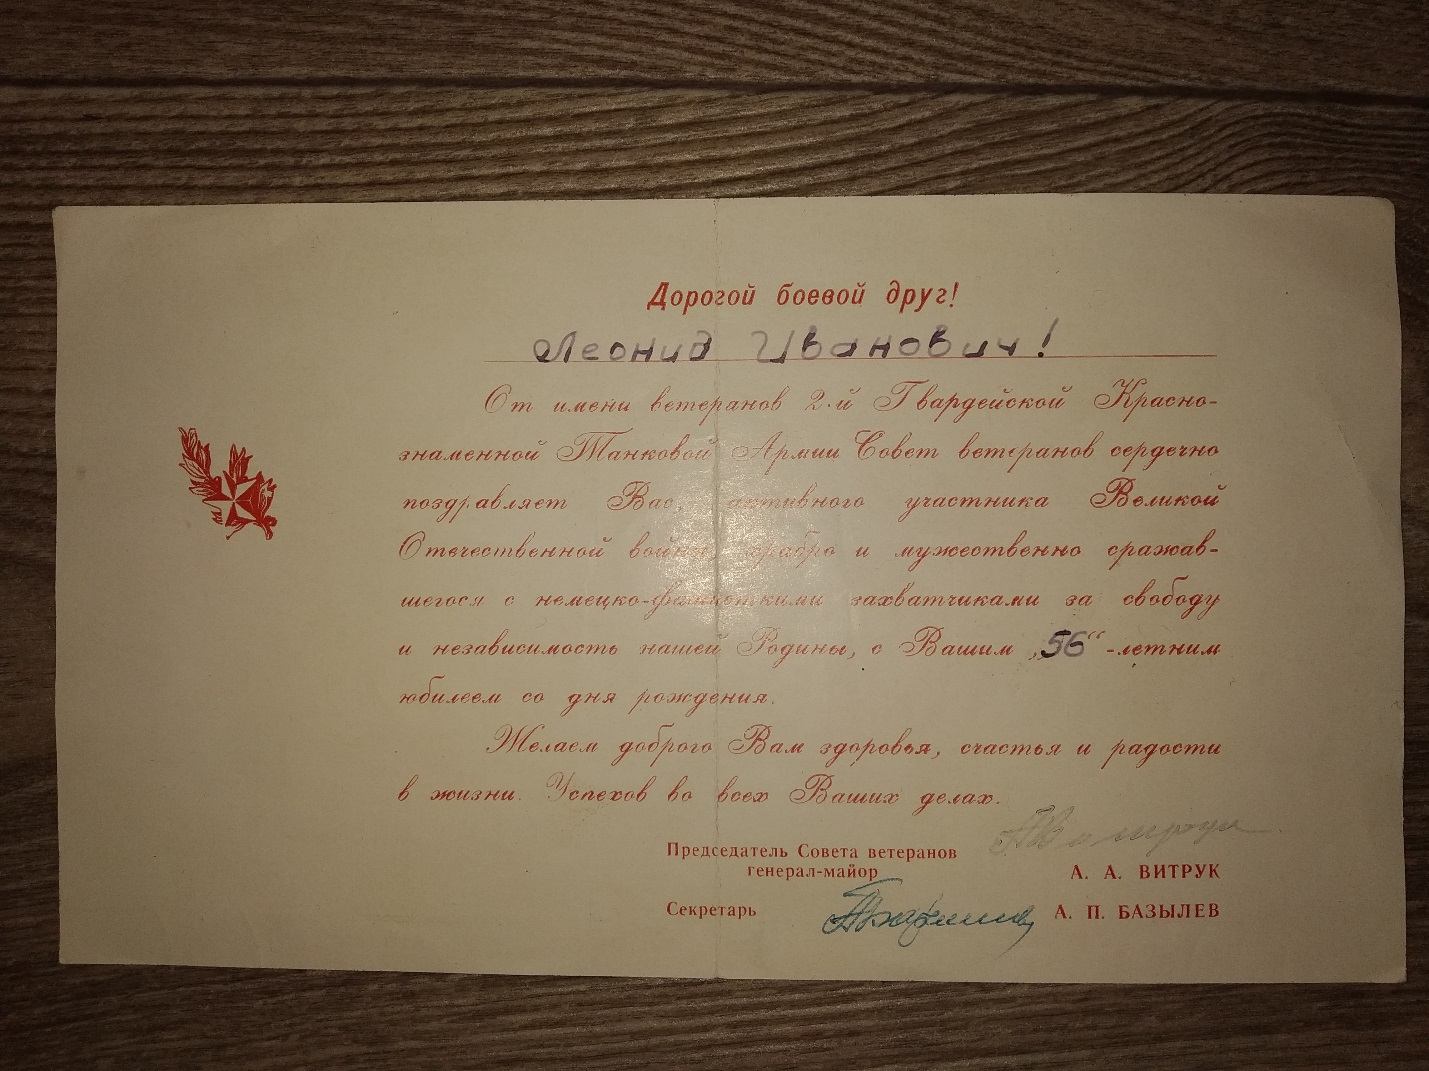 Дорогой боевой друг!
Леонид Иванович!
От имени ветеранов 2-й Гвардейской Красно-
знаменной Танковой Армии Совет ветеранов сердечно
поздравляет Вас, активного участника Великой
Отечественной войны, храбро и мужественно сражав-
шегося с немецко-фашистскими захватчиками за свободу
и независимость нашей Родины, с Вашим „56“-летним
юбилеем со дня рождения.
Желаем доброго Вам здоровья, счастья и радости
в жизни. Успехов во всех Ваших делах.
Председатель Совета ветеранов
генерал-майор А. А. ВИТРУК
Секретарь А. П. БАЗЫЛЕВ